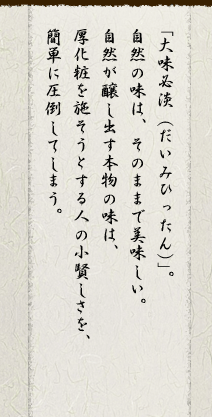 「大味必淡（だいみひったん）」。
自然の味は、そのままで美味しい。
自然が醸し出す本物の味は、
厚化粧を施そうとする人の小賢しさを、
簡単に圧倒してしまう。